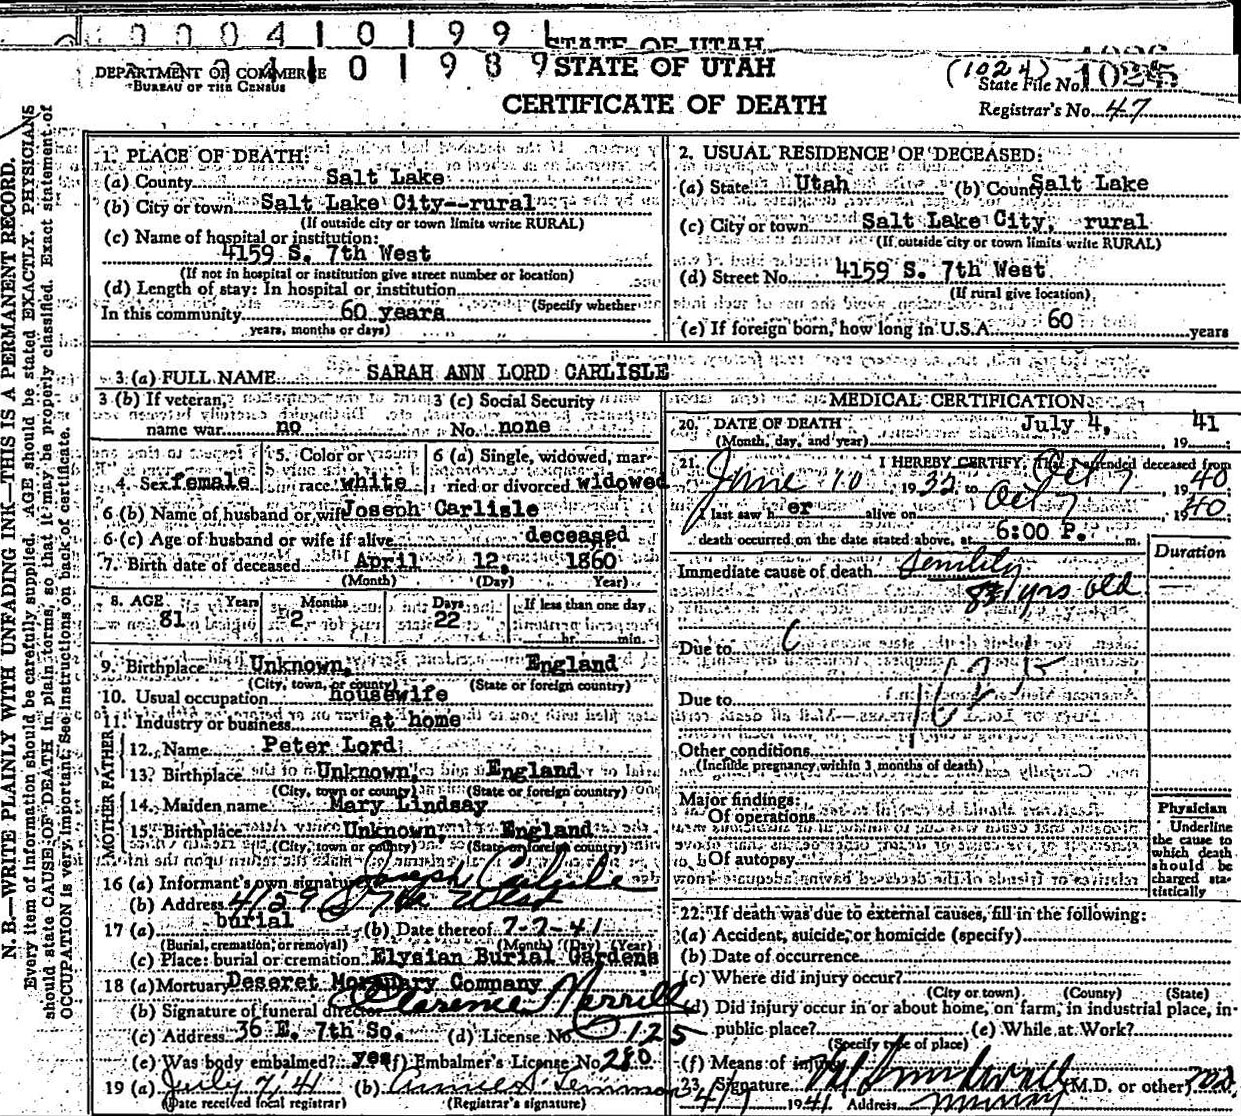 0 0 0 4 1 0 1 9 9 1
STATE OF UTAH
DEPARTMENT OF COMMERCE
BUREAU OF THE CENSUS
4 1 0 1 9 8 9
STATE OF UTAH
CERTIFICATE OF DEATH
(1024)
State File No. 1025
Registrar's No. 47
N. B.—WRITE PLAINLY WITH UNFADING INK—THIS IS A PERMANENT RECORD.
Every item of information should be carefully supplied. AGE should be stated EXACTLY. PHYSICIANS
should state CAUSE OF DEATH in plain terms, so that it may be properly classified. Exact statement of
OCCUPATION is very important. See instructions on back of certificate.
1. PLACE OF DEATH:
(a) County Salt Lake
(b) City or town Salt Lake City--rural
(If outside city or town limits write RURAL)
(c) Name of hospital or institution:
4159 S. 7th West
(If not in hospital or institution give street number or location)
(d) Length of stay: In hospital or institution
(Specify whether
In this community 60 years
years, months or days)
2. USUAL RESIDENCE OF DECEASED:
(a) State Utah (b) County Salt Lake
(c) City or town Salt Lake City, rural
(If outside city or town limits write RURAL)
(d) Street No. 4159 S. 7th West
(If rural give location)
(e) If foreign born, how long in U.S.A. 60 years
3 (a) FULL NAME SARAH ANN LORD CARLISLE
3 (b) If veteran, name war no
3 (c) Social Security No. none
4. Sex female
5. Color or race white
6 (a) Single, widowed, married or divorced widowed
6 (b) Name of husband or wife Joseph Carlisle
6 (c) Age of husband or wife if alive deceased
7. Birth date of deceased April 12, 1860
(Month) (Day) Year)
8. AGE Years Months Days If less than one day
81 2 22 hr. min.
9. Birthplace Unknown, England
(City, town, or county) (State or foreign country)
10. Usual occupation housewife
11. Industry or business at home
FATHER
12. Name Peter Lord
13. Birthplace Unknown, England
(City, town or county) (State or foreign country)
MOTHER
14. Maiden name Mary Lindsay
15. Birthplace Unknown, England
(City, town or county) (State or foreign country)
16 (a) Informant's own signature Joseph Carlisle
(b) Address 4129 S 7th West
17 (a) burial (b) Date thereof 7-7-41
(Burial, cremation, or removal) (Month) (Day) (Year)
(c) Place: burial or cremation Elysian Burial Gardens
18 (a) Mortuary Deseret Mortuary Company
(b) Signature of funeral director Clarence Merrill
(c) Address 36 E. 7th So. (d) License No. 125
(e) Was body embalmed? yes (f) Embalmer's License No. 280
19 (a) July 7, 41 (b)
(Date received local registrar) (Registrar's signature)
MEDICAL CERTIFICATION
20. DATE OF DEATH July 4, 19 41
(Month, day, and year)
21. I HEREBY CERTIFY, That I attended deceased from
June 10, 1935, to Oct 7, 1940
I last saw her alive on Oct 7, 1940
death occurred on the date stated above, at 6:00 P. m.
Duration
Immediate cause of death Senility
81 yrs old
Due to
Due to
Other conditions
(Include pregnancy within 3 months of death)
Major findings:
Of operations
Of autopsy
Physician
Underline
the cause to
which death
should be
charged sta-
tistically
22. If death was due to external causes, fill in the following:
(a) Accident, suicide, or homicide (specify)
(b) Date of occurrence
(c) Where did injury occur?
(City or town) (County) (State)
(d) Did injury occur in or about home, on farm, in industrial place, in
public place? (e) While at Work?
(Specify type of place)
(f) Means of injury
23. Signature (M.D. or other)
1941 Address Murray